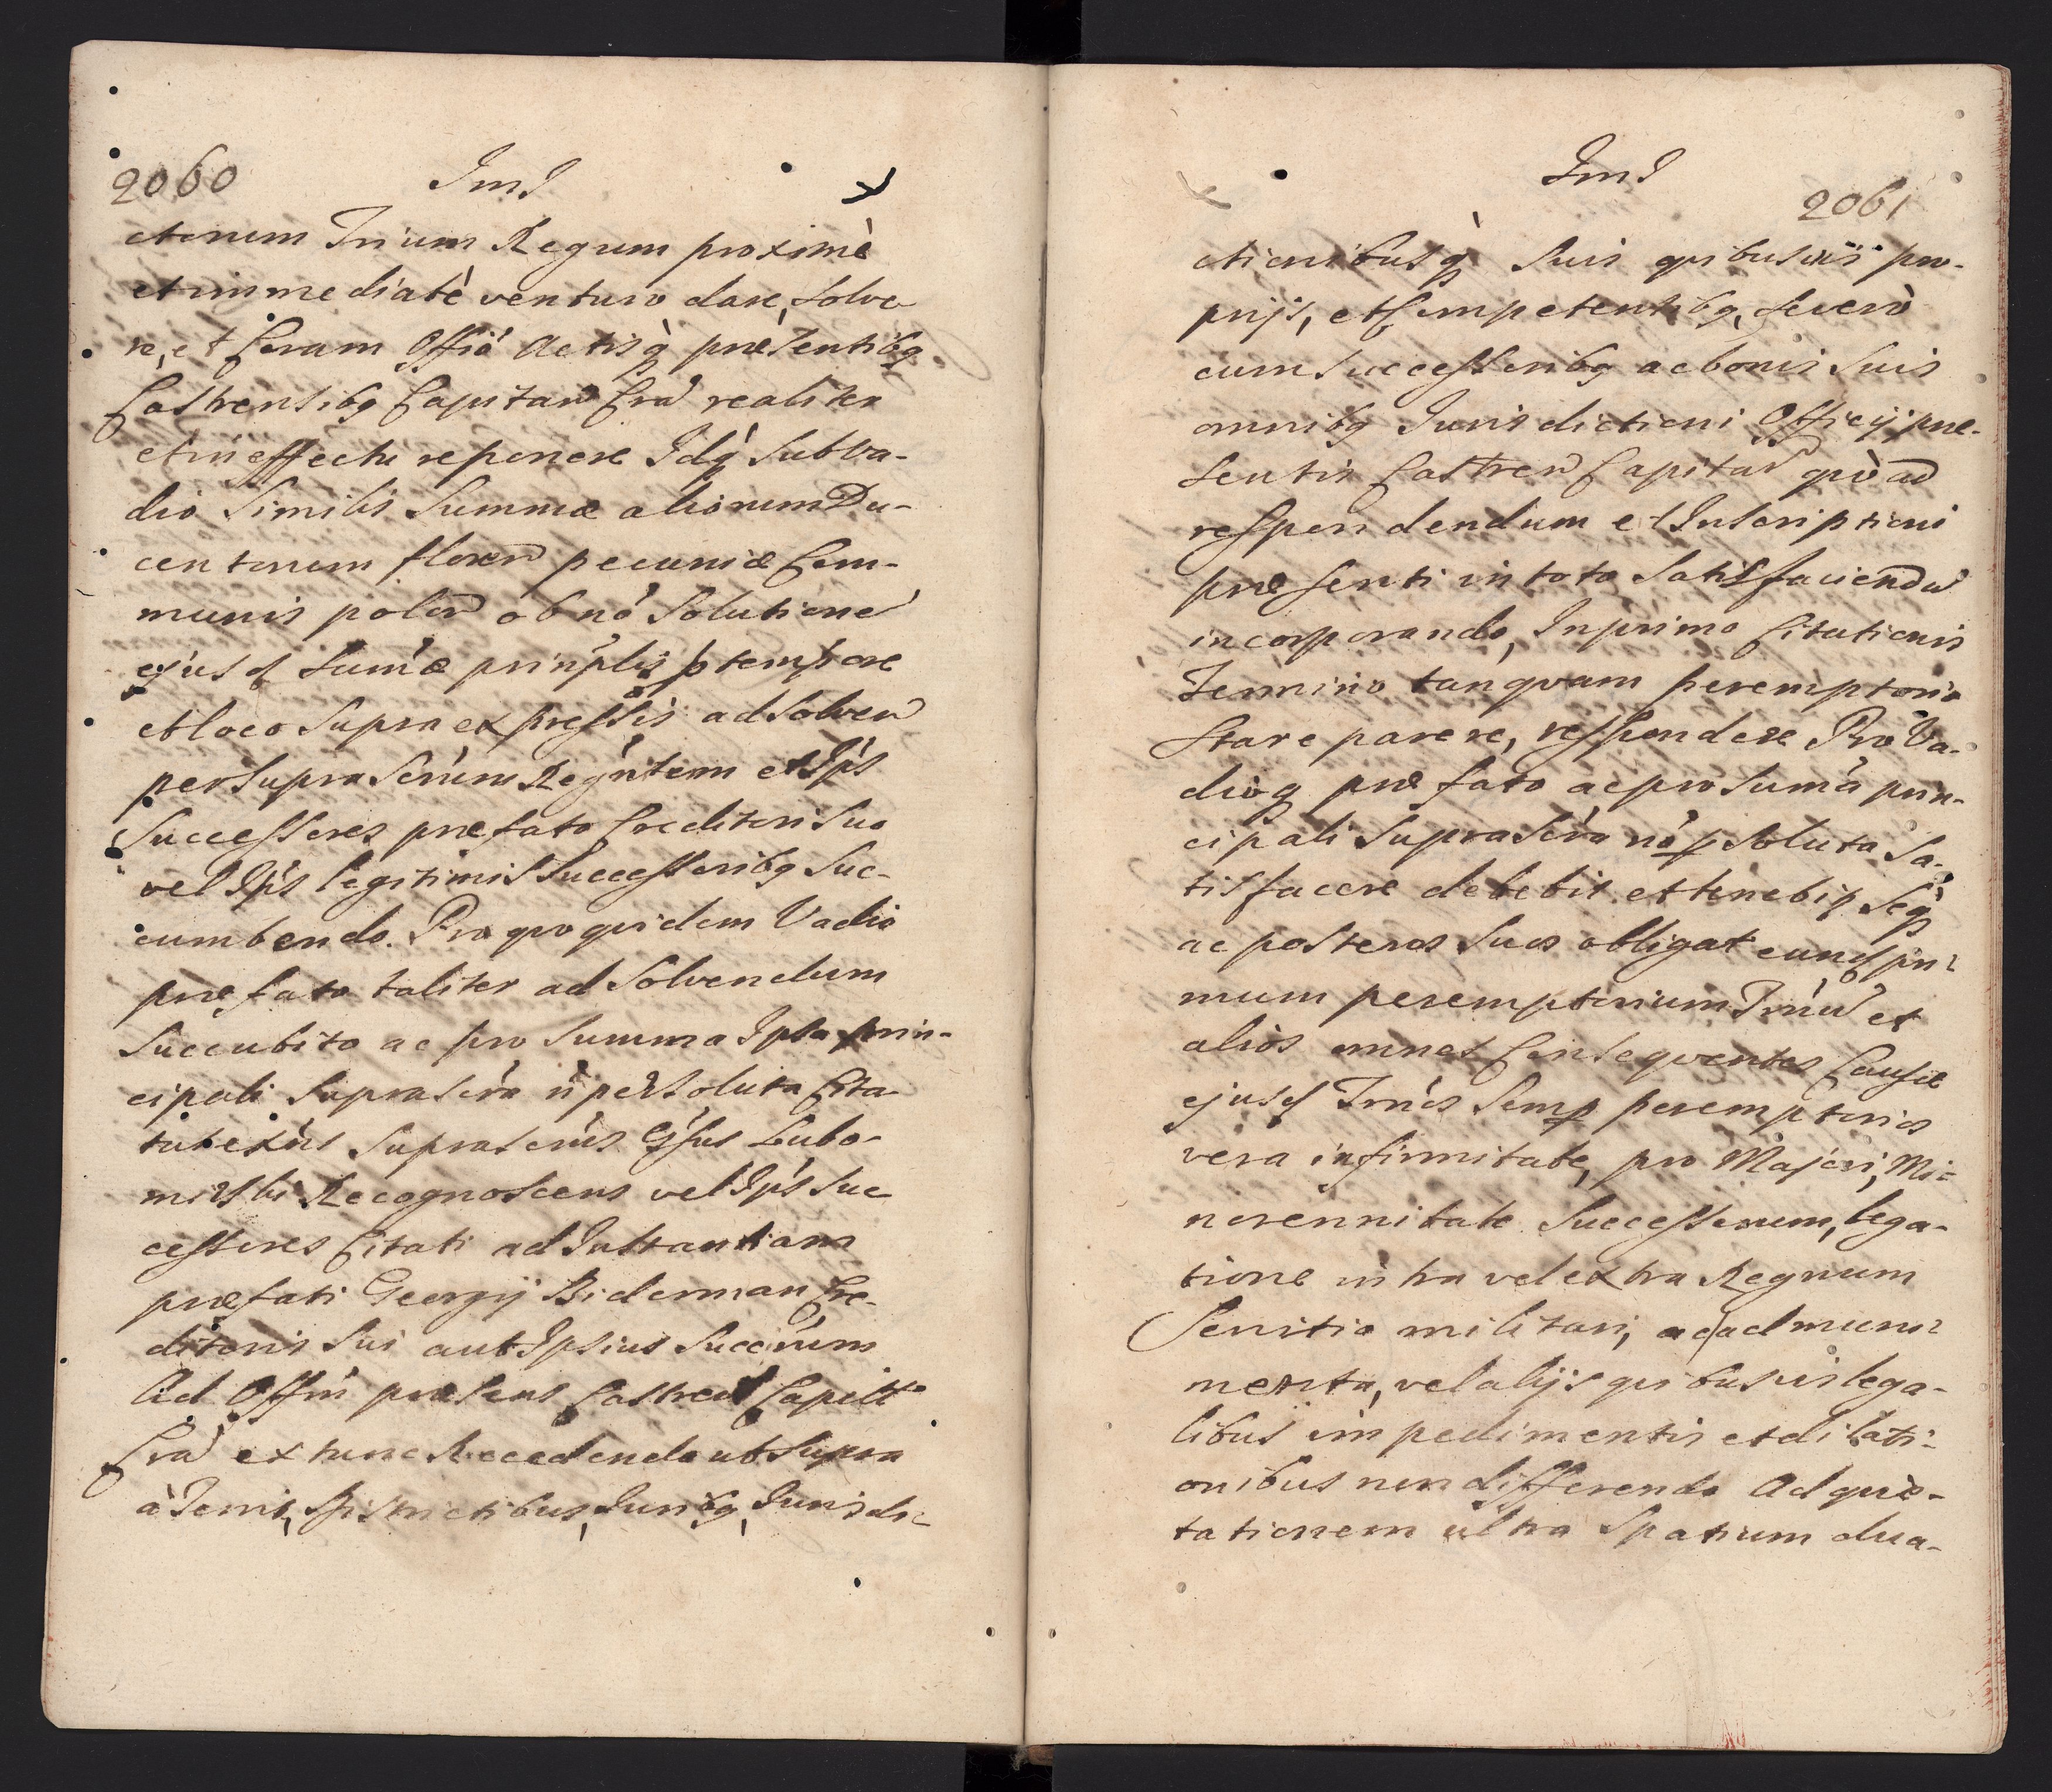 2060
Ims
ctorum Trium Regum proximè
et immediatè venturo dare, solve
re, et Coram Offió Actisq̀ præsentibq
Castrensibq Capitan Cra realiter
et in effectu reponere Idq̀ sub va-
dio Similis Summæ aliorum Du-
centorum floren pecuniæ Com-
munis polon ob nó Solutione
ejusd Sumæ prinplis p tempore
et loco supra expressis adsolven
per supra Scrúm Regńtem et Ips
Successores præfato Creditori Suo
vel Ips legitimis Successoribq Suc-
cumbendo. Pro quo quidem Vadio
præfato taliter ad Solvendum
Succubito ac pro Summa Ipsa prin-
cipali suprascra ń persoluta Cita-
tus
Recognoscens vel Ips Suc
cessores Citati ad Instantiam
præfati Georgij Biderman Cre-
ditoris Sui aut Ipsius Succrúm
Ad Offm præsens Castren Capitt
Cra ex tunc Recedendo ut supra
à Terris, Districtibus, Juribq, Jurisdi-
Ims
2061
ctionibusq̀ Suis quibusvis pro-
prijs, et Competentibq, se verò
cum Successoribq ac bonis Suis
omnibq Jurisdictioni Officij præ-
sentis Castren Capitan quò ad
respondendum et Inscriptioni
præsenti in toto Satisfaciendu
incorporando, In primo Citationis
Termino tanquam peremptorio
Stare parere, respondere Pro Va-
dioq præfato ac pro sumá prin-
cipali suprascra nó p soluta Sa-
tisfacere debebit et tenebit Seq̀
ac posteros Suos obligat eund pri-
mum peremptorium Trńu et
alios omnes Consequentes Causæ
ejusd Trńos Semp peremptorios
vera infirmitate, pro Majori, Mi-
norennitate Successorum, lega-
tione intra vel extra Regnum
Servitio militari, ac ad muni-
menta, vel alijs quibusvis lega-
libus impedimentis et dilati-
onibus non differendo Ad quie-
tationem ultra Spatium dua-